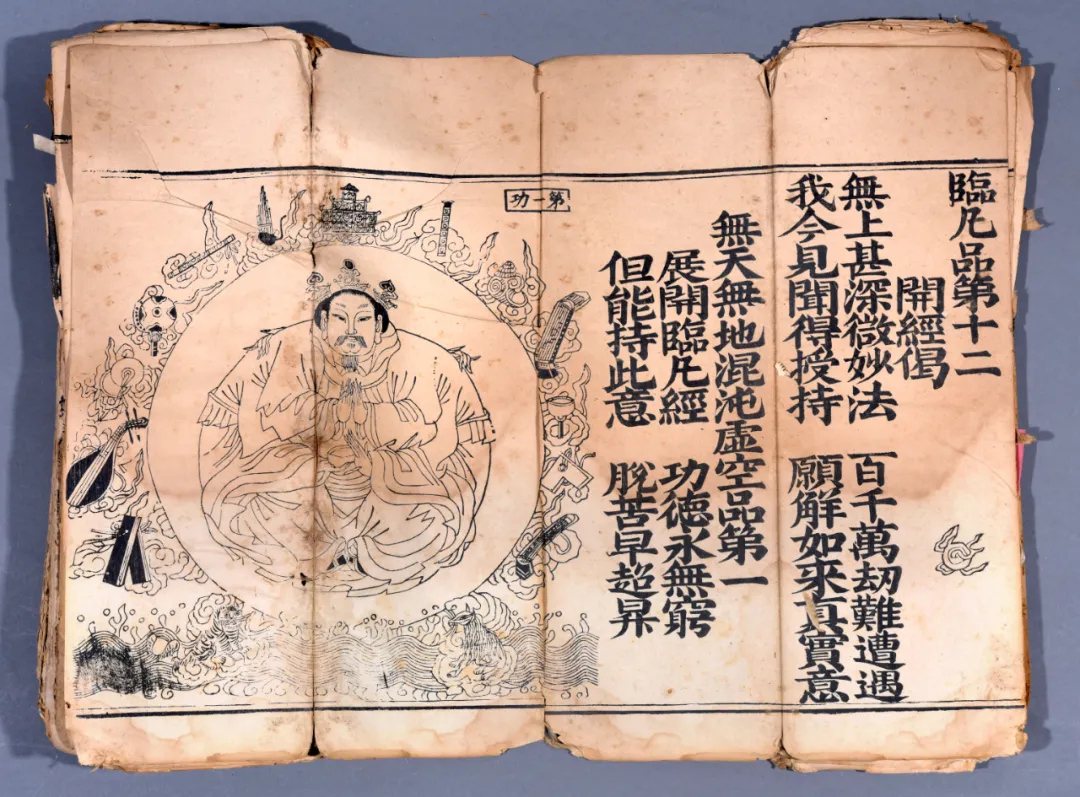 臨凢品第十二
開經偈
無上甚深微妙法　百千萬劫難遭遇
我今見聞得授持　願解如來真實意
無天無地混沌虛空品第一
展開臨凢經　功德永無窮
但能持此意　脫苦早超昇
第一功